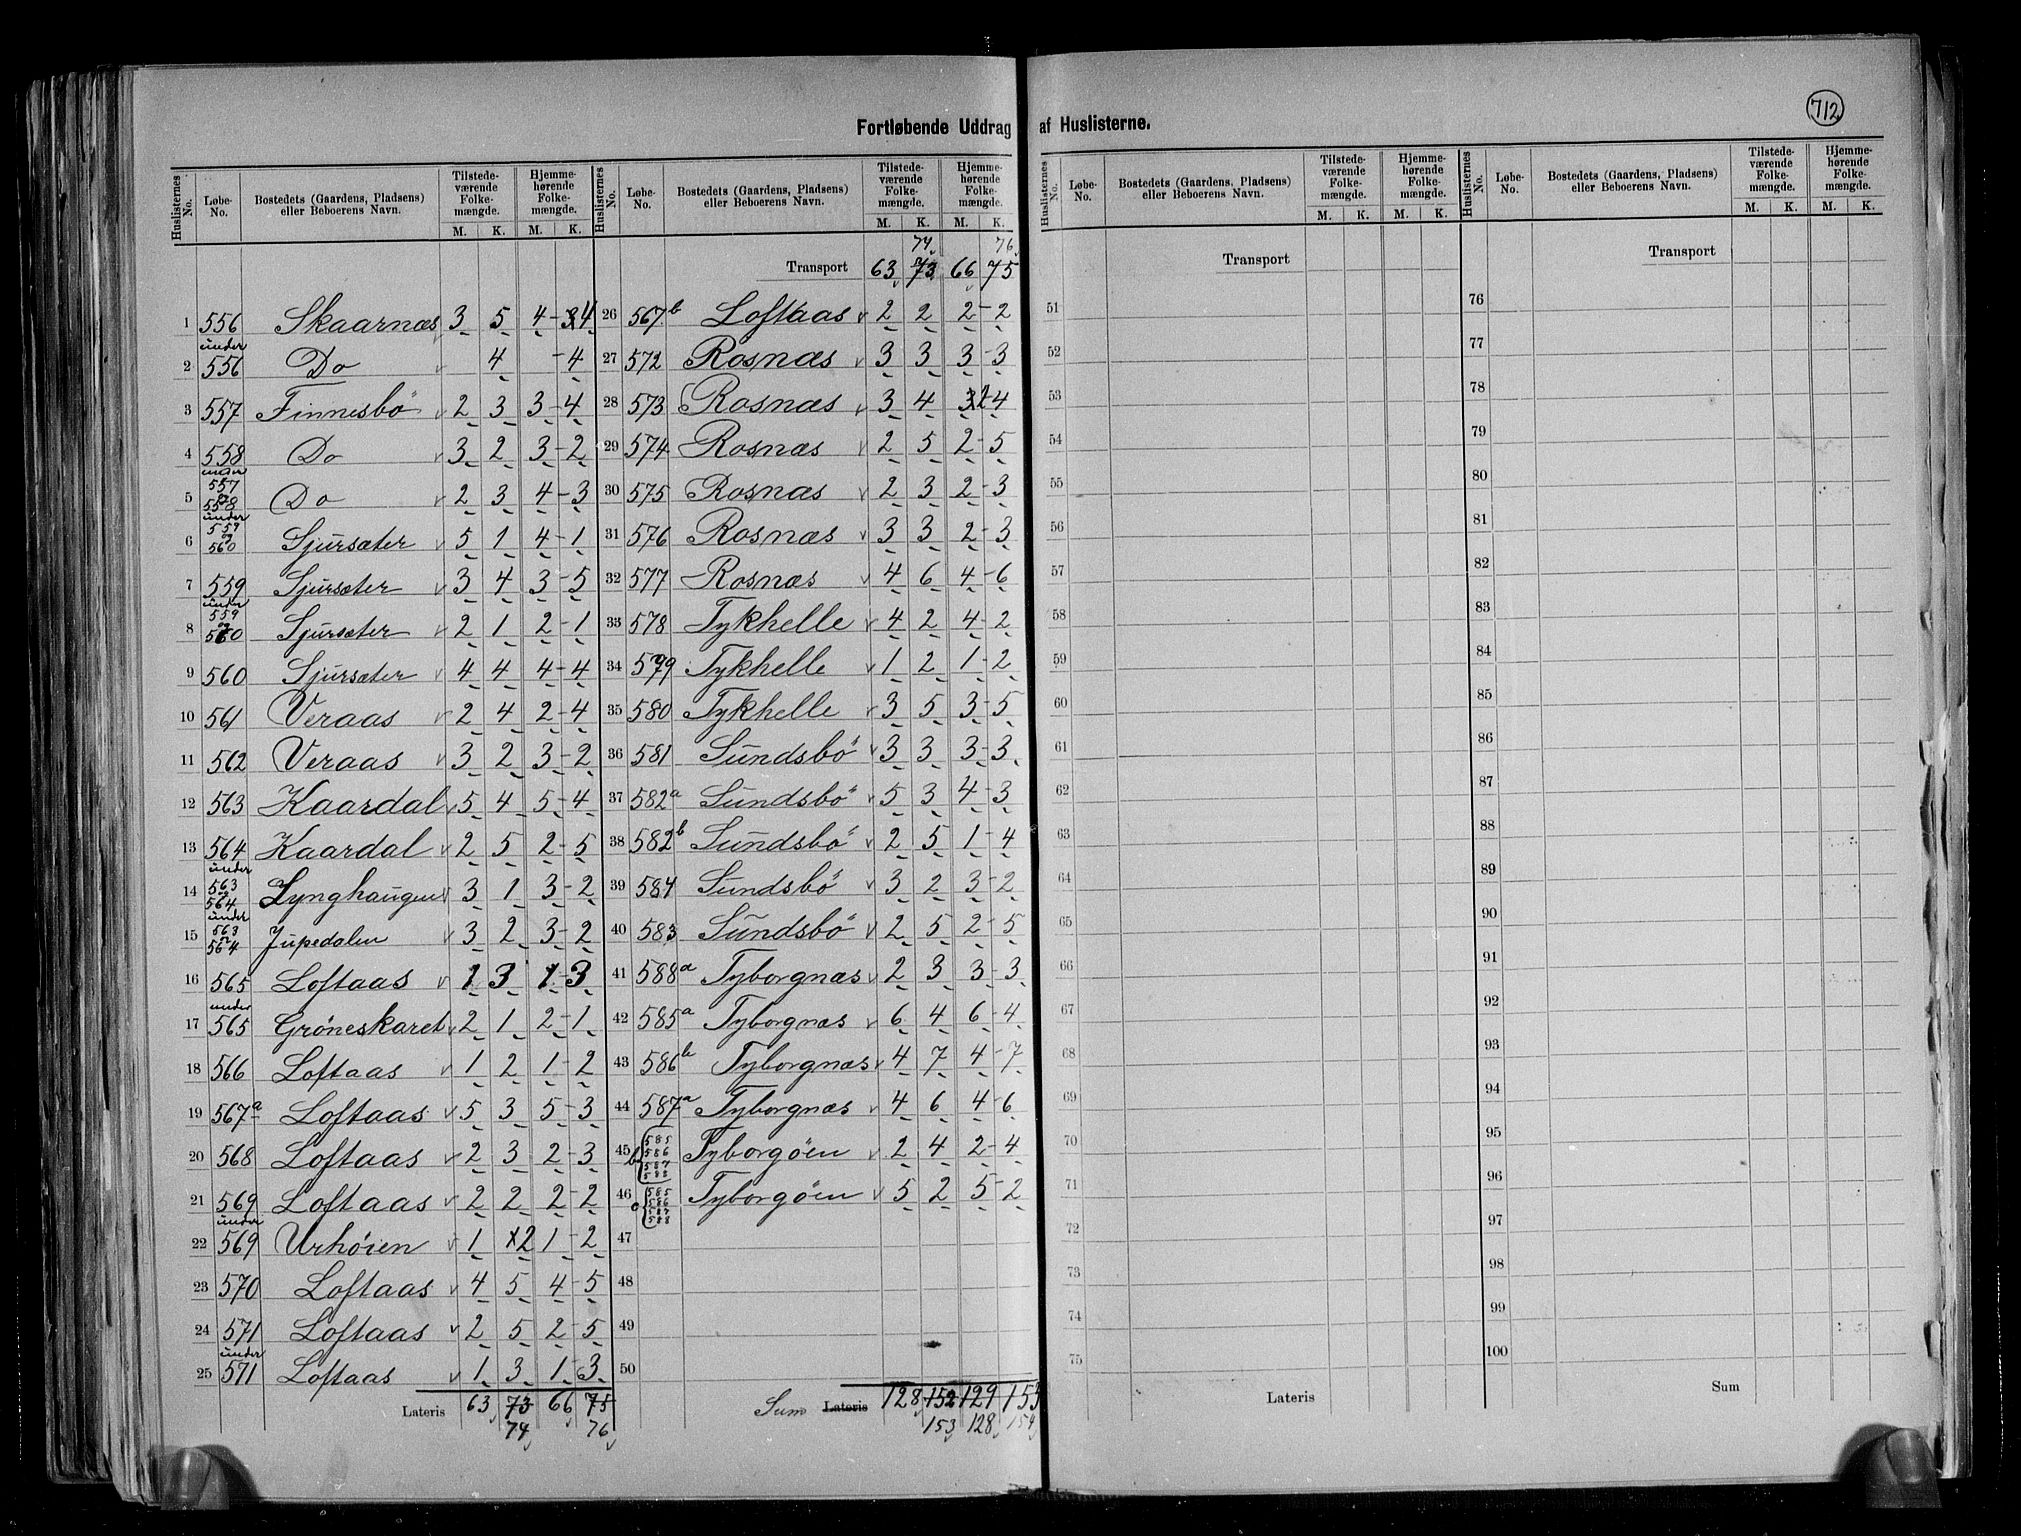 712
Fortløbende Uddrag af Huslisterne.
Huslisternes No. | Løbe-No. | Bostedets (Gaardens, Pladsens) eller Beboerens Navn. | Tilstedeværende Folkemængde. M. K. | Hjemmehørende Folkemængde. M. K.
1 556 Skaarnæs 3 5 4 - 3 4
2 under 556 Do 4 - 4
3 557 Finnesbö 2 3 3 - 4
4 558 Do 3 2 3 - 2
5 under 557 og 558 Do 2 3 4 - 3
6 under 559 og 560 Sjursæter 5 1 4 - 1
7 559 Sjursæter 3 4 3 - 5
8 under 559 og 560 Sjursæter 2 1 2 - 1
9 560 Sjursæter 4 4 4 - 4
10 561 Veraas 2 4 2 - 4
11 562 Veraas 3 2 3 - 2
12 563 Kaardal 5 4 5 - 4
13 564 Kaardal 2 5 2 - 5
14 under 563 og 564 Lynghaugen 3 1 3 - 2
15 under 563 og 564 Jupedalen 3 2 3 - 2
16 565 Loftaas 1 3 1 - 3
17 under 565 Gröneskaret 2 1 2 - 1
18 566 Loftaas 1 2 1 - 2
19 567a Loftaas 5 3 5 - 3
20 568 Loftaas 2 3 2 - 3
21 569 Loftaas 2 2 2 - 2
22 under 569 Urhöien 1 2 1 - 2
23 570 Loftaas 4 5 4 - 5
24 571 Loftaas 2 5 2 - 5
25 under 571 Loftaas 1 3 1 - 3
Lateris 63 73 66 75
74 76
Huslisternes No. | Løbe-No. | Bostedets (Gaardens, Pladsens) eller Beboerens Navn. | Tilstedeværende Folkemængde. M. K. | Hjemmehørende Folkemængde. M. K.
74 76
Transport 63 73 66 75
26 567b Loftaas 2 2 2 - 2
27 572 Rosnæs 3 3 3 - 3
28 573 Rosnæs 3 4 3 2 - 4
29 574 Rosnæs 2 5 2 - 5
30 575 Rosnæs 2 3 2 - 3
31 576 Rosnæs 3 3 2 - 3
32 577 Rosnæs 4 6 4 - 6
33 578 Tykhelle 4 2 4 - 2
34 579 Tykhelle 1 2 1 - 2
35 580 Tykhelle 3 5 3 - 5
36 581 Sundsbö 3 3 3 - 3
37 582a Sundsbö 5 3 4 - 3
38 582b Sundsbö 2 5 1 - 4
39 584 Sundsbö 3 2 3 - 2
40 583 Sundsbö 2 5 2 - 5
41 588a Tyborgnæs 2 3 3 - 3
42 585a Tyborgnæs 6 4 6 - 4
43 586b Tyborgnæs 4 7 4 - 7
44 587a Tyborgnæs 4 6 4 - 6
45 b 585 586 587 588 Tyborgöen 2 4 2 - 4
46 c 585 586 587 588 Tyborgöen 5 2 5 - 2
47
48
49
50
Sum Lateris 128 152 129 155
153 128 154
Huslisternes No. | Løbe-No. | Bostedets (Gaardens, Pladsens) eller Beboerens Navn. | Tilstedeværende Folkemængde. M. K. | Hjemmehørende Folkemængde. M. K.
Transport
51
52
53
54
55
56
57
58
59
60
61
62
63
64
65
66
67
68
69
70
71
72
73
74
75
Lateris
Huslisternes No. | Løbe-No. | Bostedets (Gaardens, Pladsens) eller Beboerens Navn. | Tilstedeværende Folkemængde. M. K. | Hjemmehørende Folkemængde. M. K.
Transport
76
77
78
79
80
81
82
83
84
85
86
87
88
89
90
91
92
93
94
95
96
97
98
99
100
Sum